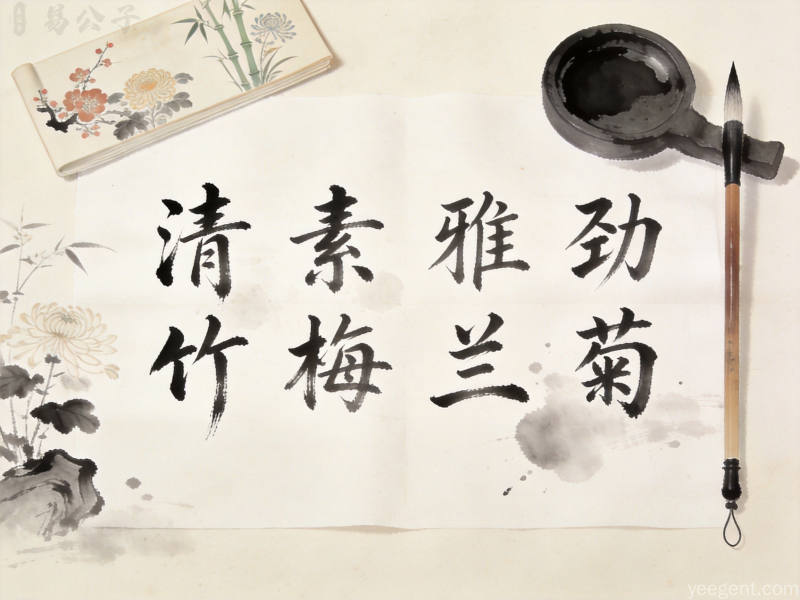 劲菊
雅兰
素梅
清竹
易公子
yeegent.com